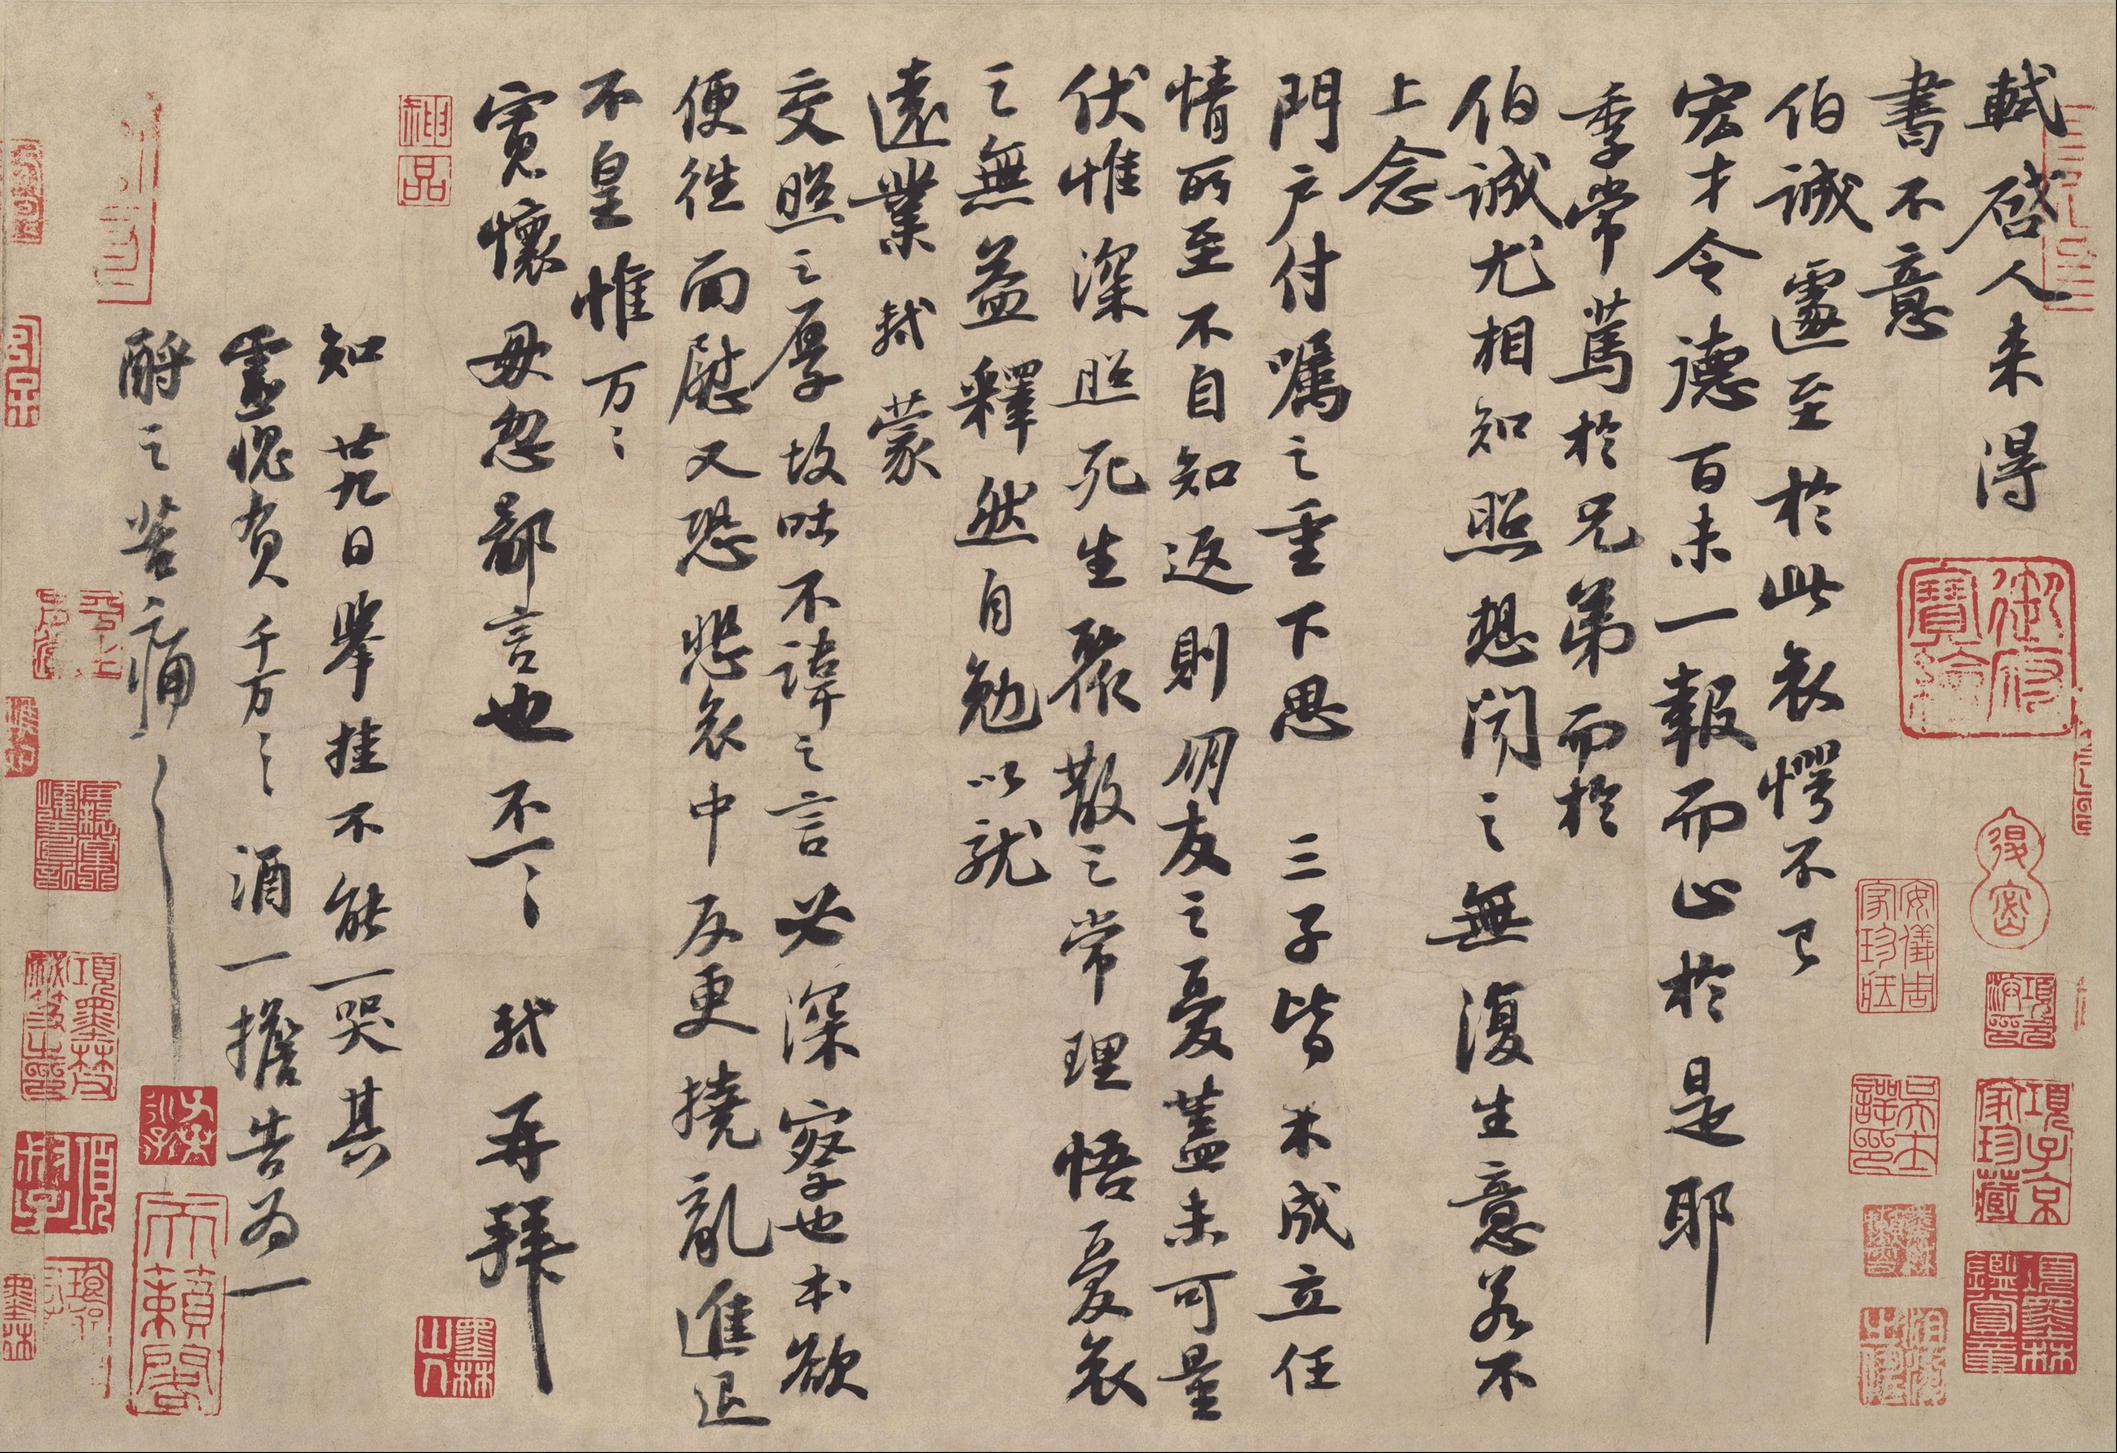 軾啓人来得
書不意
伯誠遽至於此哀愕不已
宏才令德百未一報而止於是耶
季常篤於兄弟而於
伯誠尤相知照想聞之無復生意若不
上念
門户付囑之重下思三子皆未成立任
情所至不自知返則朋友之憂蓋未可量
伏惟深照死生聚散之常理悟憂哀
之無益釋然自勉以就
遠業軾蒙
交照之厚故吐不諱之言必深察也本欲
便往面慰又恐悲哀中反更撓亂進退
不皇惟万〻
寬懷毋忽鄙言也不一〻軾再拜
知廿九日舉挂不能一哭其
靈愧負千万〻酒一擔告為一
酹之苦痛〻
御府寶繪
安儀周家珍藏
項子京家珍藏
項墨林鑑賞章
神品
墨林山人
天籟閣